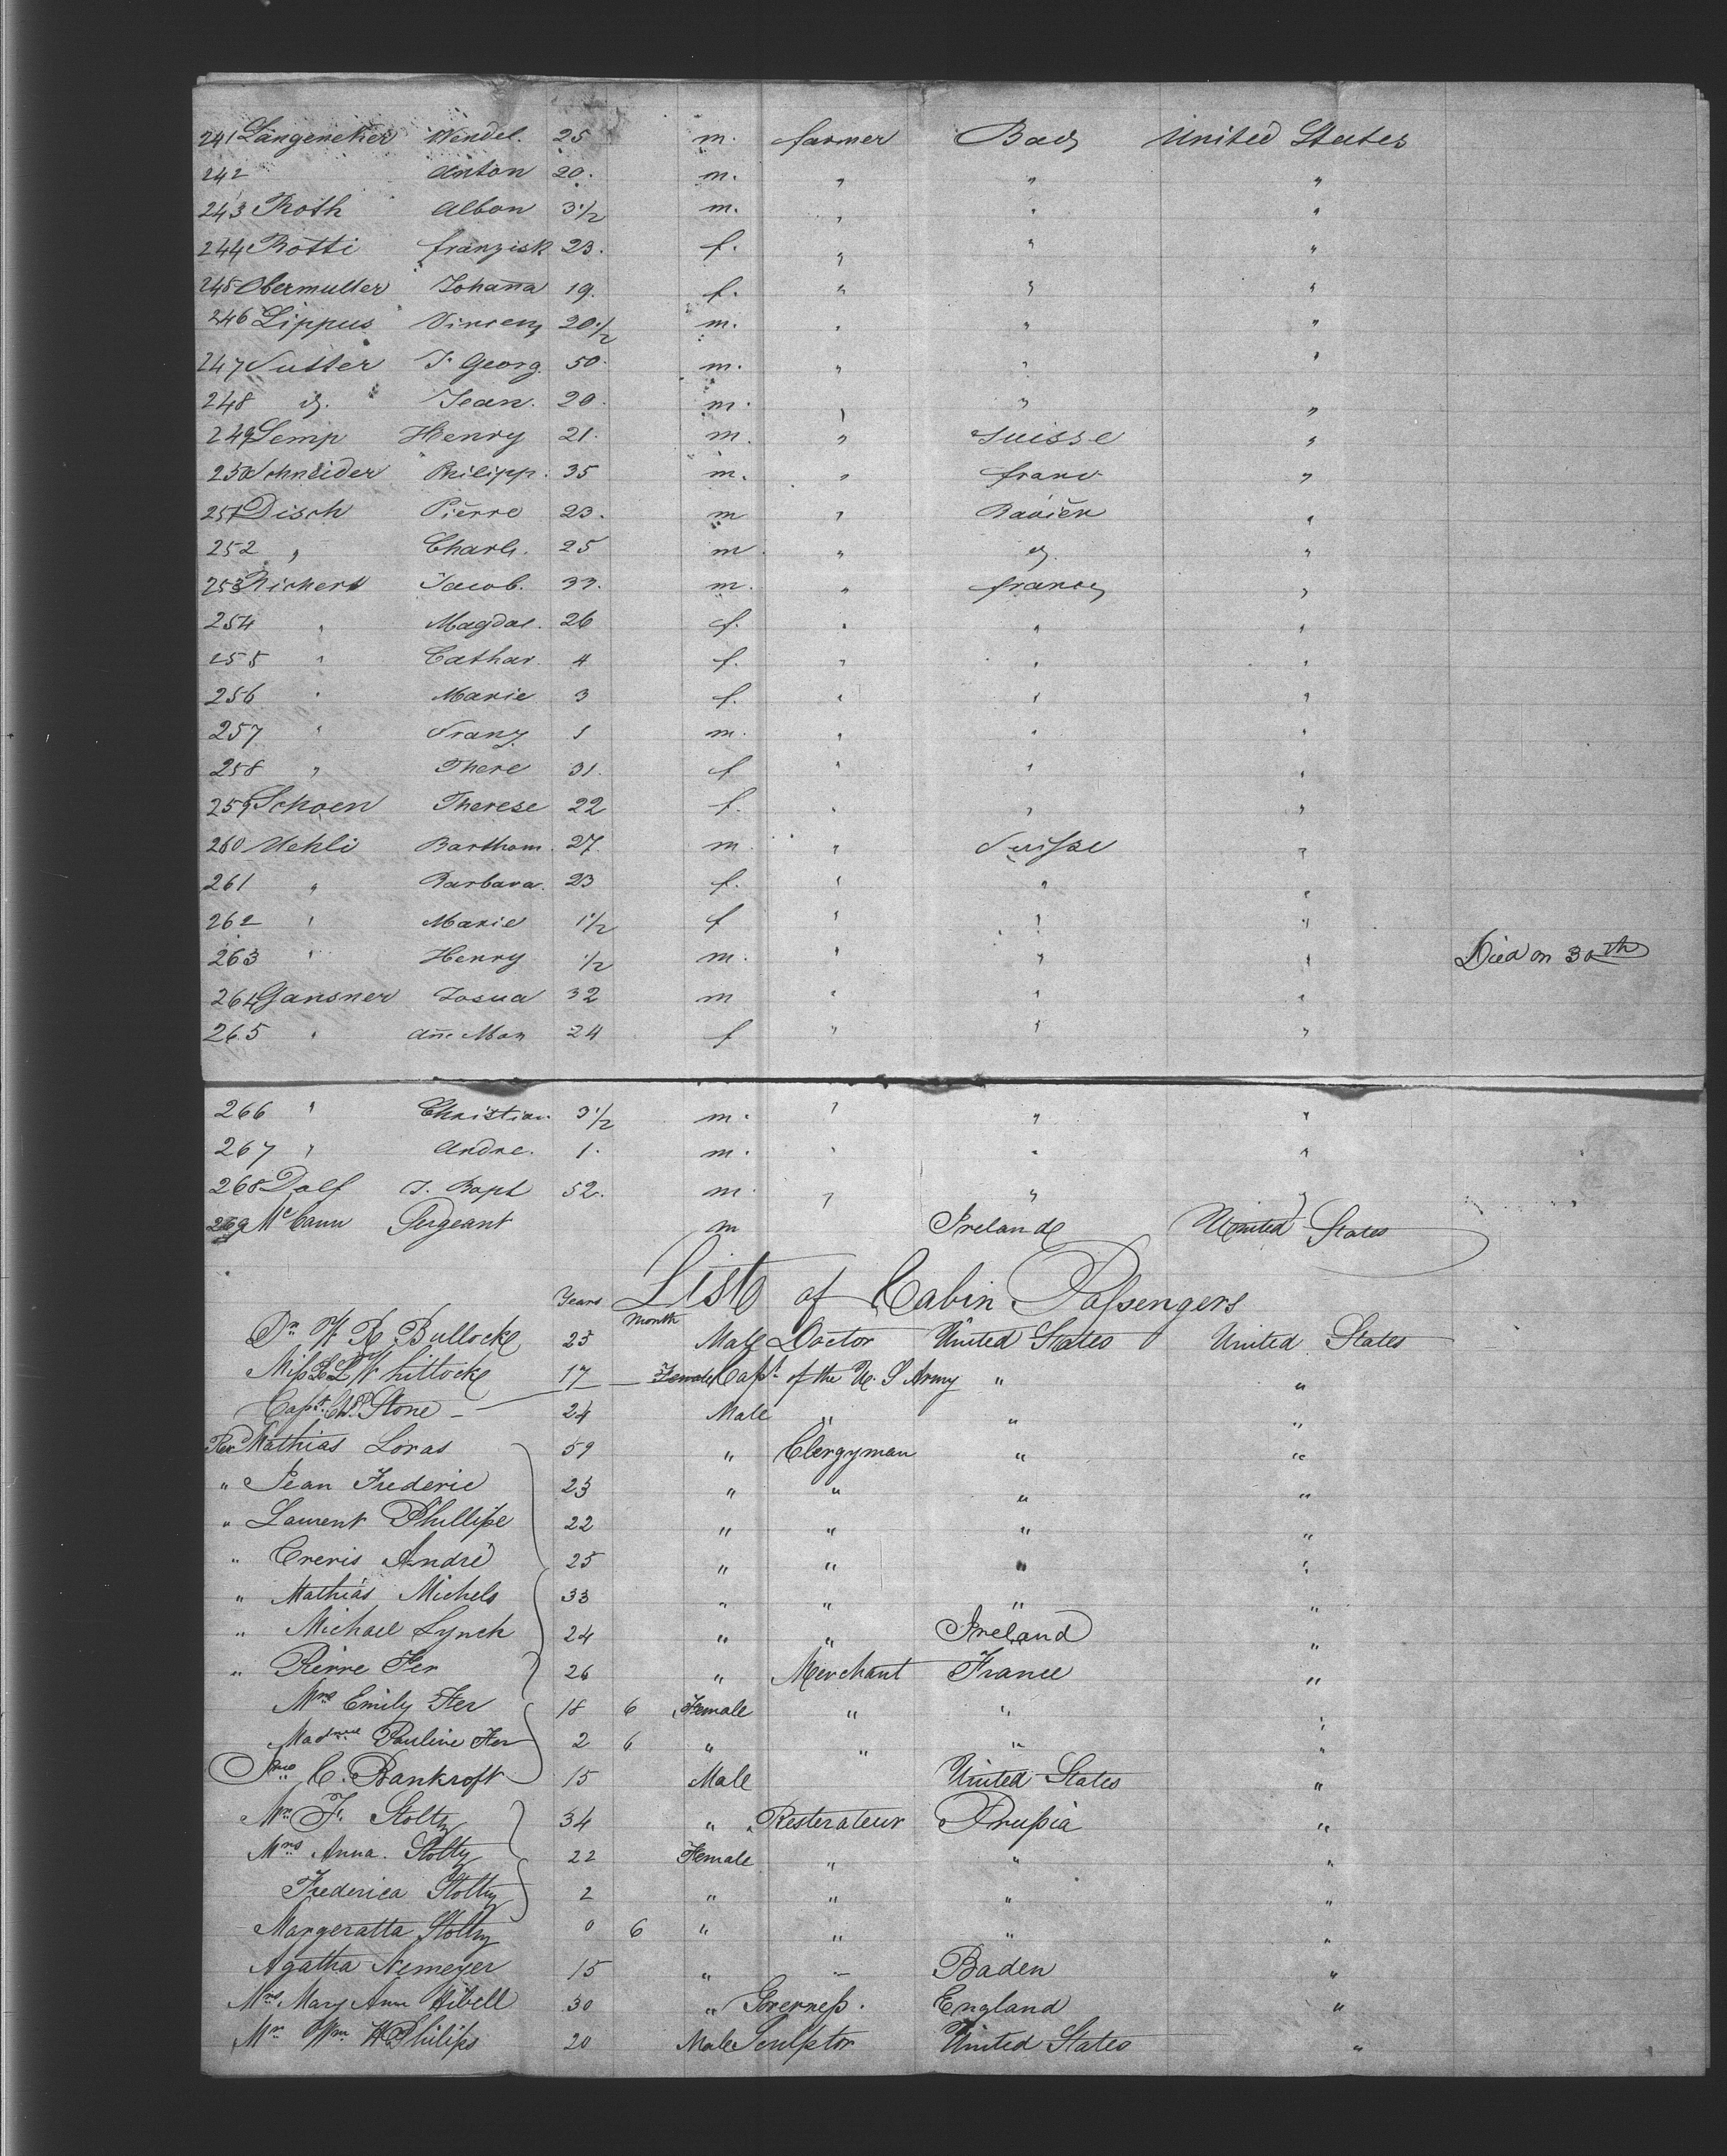 241 Langenecker Wendel. 25 m. farmer Bad United States
242 Anton 20. m. " " "
243 Roth Alban 3 1/2 m. " " "
244 Rotti franzisk 23. f. " " "
245 Obermuller Johanna 19. f. " " "
246 Lippus Vincenz 20 1/2 m. " " "
247 Sutter J. Georg. 50. m. " " "
248 id. Jean. 20. m. " " "
249 Semp Henry 21. m. " Suisse "
250 Schneider Philipp. 35 m. " franc "
251 Disch Pierre 23. m " Bavier "
252 " Charls. 25 m. " id. "
253 Richert Jacob. 33. m. " france "
254 " Magdal. 26 f. " " "
255 " Cathar. 4 f. " " "
256 " Marie 3 f. " " "
257 " Franz. 1 m. " " "
258 " There 31. f " " "
259 Schoen Therese 22 f. " " "
260 Uehli Barthom. 27. m. " Suisse "
261 " Barbara. 23 f. " " "
262 " Marie 1 1/2 f " " "
263 " Henry 1/2 m. " " " Died on 30th
264 Gansner Josua 32 m " " "
265 " Ane Mar 24 f " " "
266 " Christian 3 1/2 m. " " "
267 " Andre. 1. m. " " "
268 Dalf J. Bapt 52. m. " " "
269 McCann Sergeant m Ireland United States
List of Cabin Passengers
Years Month
Dr. W R Bullock 25 Male Doctor United States United States
Miss Whittock 17 Female Capt. of the U. S Army " "
Capt. Stone 24 Male " " "
Rev Mathias Loras 59 " Clergyman " "
" Jean Frederic 23 " " " "
" Laurent Phillipe 22 " " " "
" Creris André 25 " " " "
" Mathias Michels 33 " " " "
" Michael Lynch 24 " " Ireland "
" Pierre Fer 26 " Merchant France "
Mrs Emily Fer 18 6 Female " " "
Pauline Fer 2 6 " " " "
C. Bankroft 15 Male United States "
Mr. F. Stoltz 34 " Resterateur Prussia "
Mrs Anna. Stoltz 22 Female " " "
Frederica Stoltz 2 " " " "
Margeratta Stoltz 0 6 " " " "
Agatha Nemeyer 15 " - Baden "
Mrs Mary Ann Hibell 30 " Governess. England "
Mr Wm H Philips 20 Male Sculptor United States "